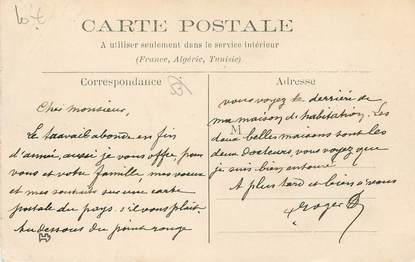 CARTE POSTALE
A utiliser seulement dans le service intérieur
(France, Algérie, Tunisie)
Correspondance
Adresse
M
Cher monsieur,
Le travail abonde en fin
d'année, aussi je vous offre pour
vous et votre famille, mes voeux
et mes souhaits sur une carte
postale du pays. s'il vous plait.
Au dessous du point rouge
vous voyez le derrière de
ma maison d'habitation. Les
deux belles maisons sont les
deux docteurs, vous voyez que
je suis bien entouré
A plus tard et bien à vous
Roger